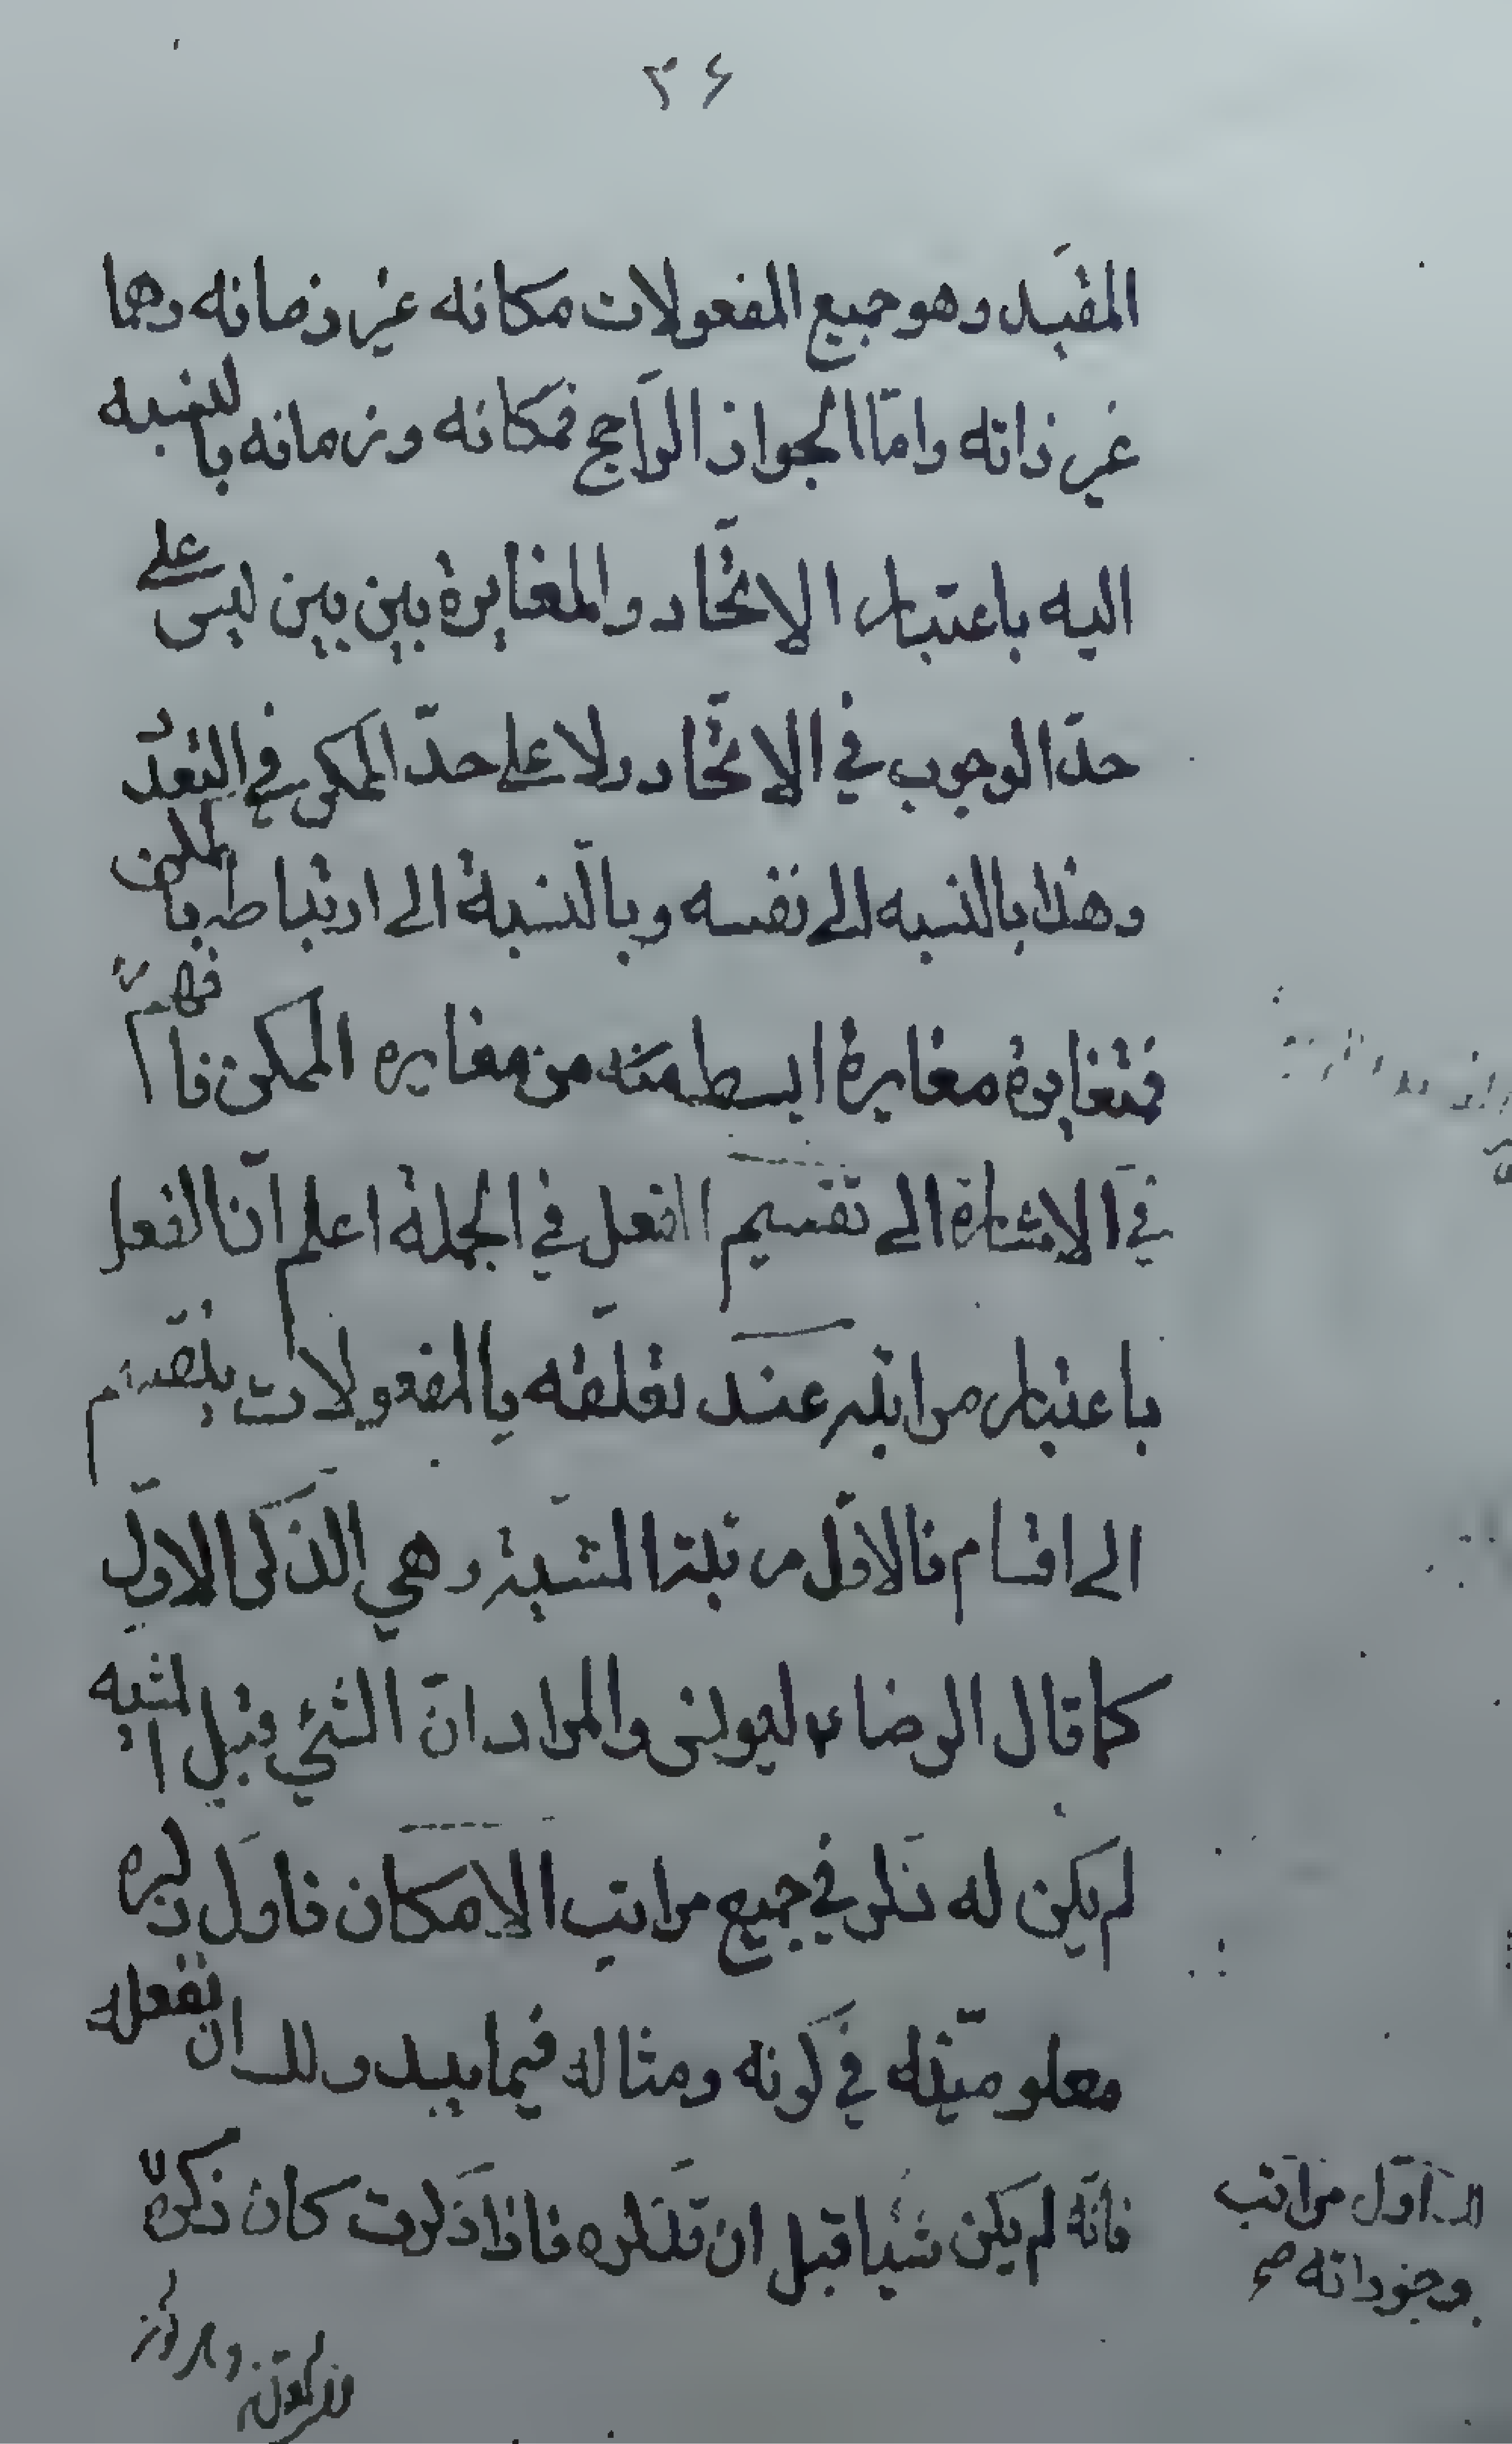 ٣۶
المقيد وهو جميع المفعولات مكانه غير زمانه وهما
غير ذاته وامّا الجواز الراجح فمكانه وزمانه بالنسبه
اليه باعتبار الاتّحاد والمغايرة بين بين ليس على
حدّ الوجوب في الاتّحاد ولا على حدّ الممكن في التعدّد
وهذا بالنسبه الى نفسه وبالنسبة الى ارتباطه بالممكن
فمتغايرة مغايرة ابسط منه من مغايره الممكن فافهم
في الاشارة الى تقسيم الفعل في الجملة اعلم انّ الفعل
باعتبار مراتبه عند تعلقه بالمفعولات ينقسم
الى اقسام فالاوّل مرتبة المشية وهي الذكر الاوّل
كما قال الرضاء ليونس والمراد انّ الشئ قبل المشيه
لم يكن له ذكر في جميع مراتب الامكان فاوّل ذكره
معلوميّته في كونه ومثاله فيما يبدو لك ان تفعله
فانّه لم يكن شيأ قبل ان تذكره فاذا ذكرت كان ذكره
اول مراتب
وجوداته صح